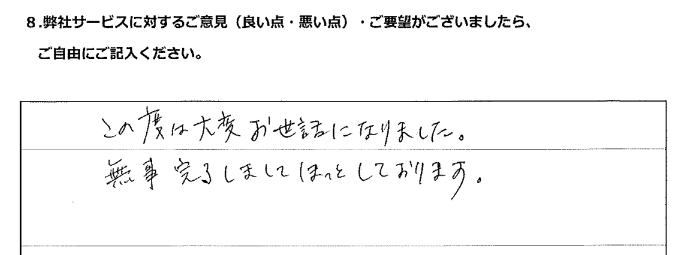 8.弊社サービスに対するご意見（良い点・悪い点）・ご要望がございましたら、
ご自由にご記入ください。
この度は大変お世話になりました。
無事完了しましてほっとしております。